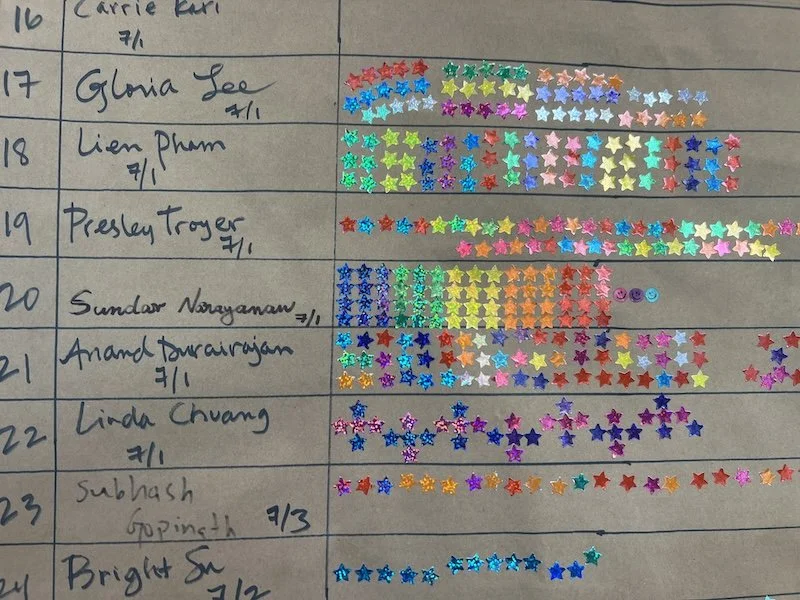 16 Carrie Kari
7/1
17 Gloria Lee
7/1
18 Lien Pham
7/1
19 Presley Troyer
7/1
20 Sundar Narayanan 7/1
21 Anand Durairajan
7/1
22 Linda Chuang
7/1
23 Subhash
Gopinath 7/3
24 Bright Su
7/2